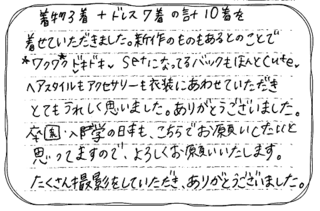 着物3着 + ドレス7着の計10着を
着せていただきました。新作のものもあるとのことで
*ワクワクドキドキ。setになってるバックもほんとcute。
ヘアスタイルもアクセサリーも衣装にあわせていただき
とてもうれしく思いました。ありがとうございました。
卒園入学の日本も、こちらでお願いしたいと
思ってますので、よろしくお願いいたします。
たくさん撮影をしていただき、ありがとうございました。